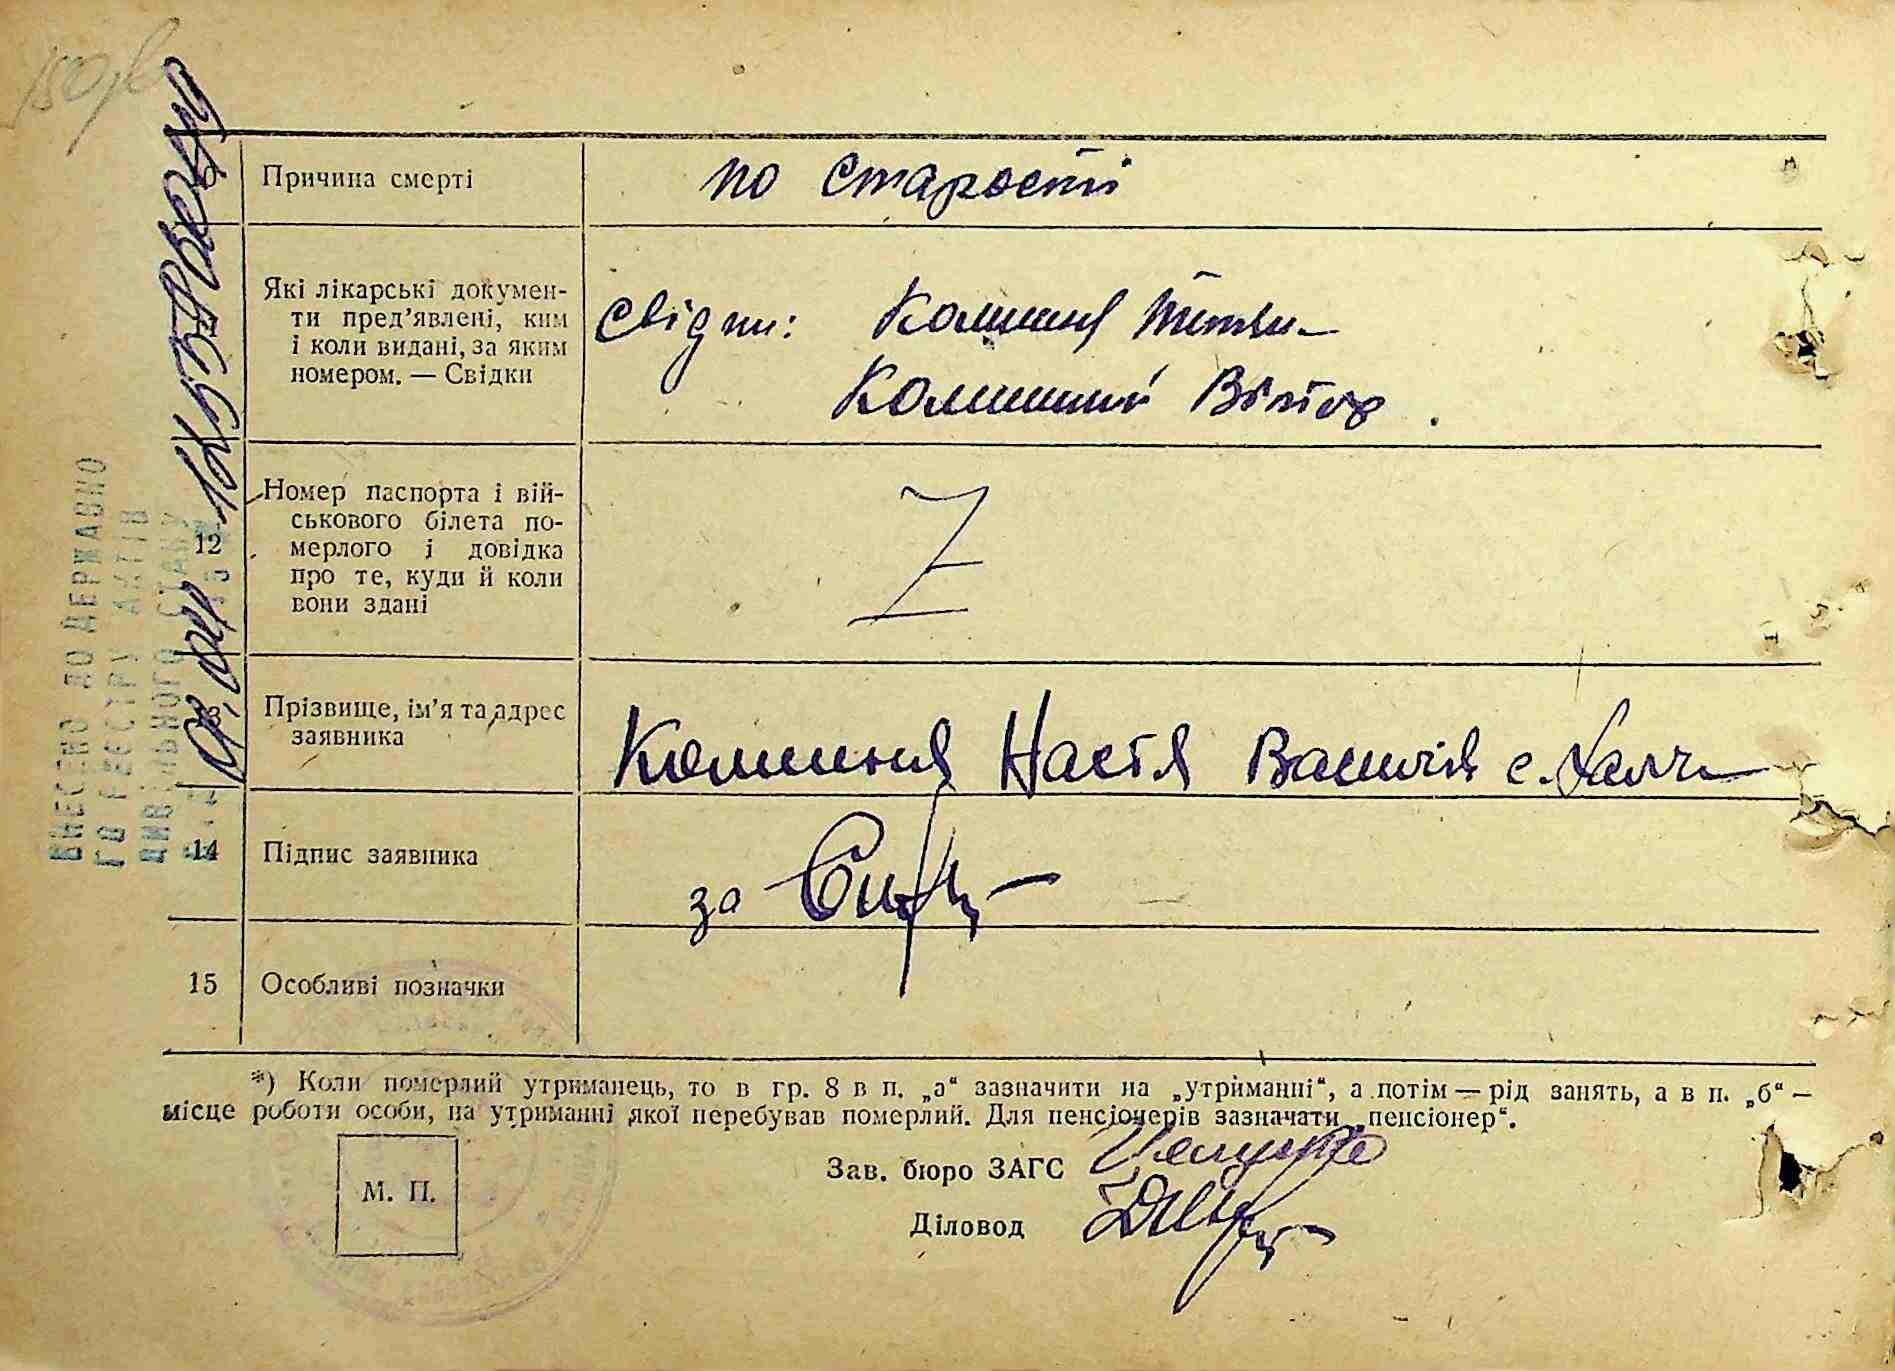 Причина смерті
по старості
Які лікарські докумен-
ти пред’явлені, ким
і коли видані, за яким
номером. — Свідки
Свідки:
Віктор
12
Номер паспорта і вій-
ськового білета по-
мерлого і довідка
про те, куди й коли
вони здані
Z
13
Прізвище, ім’я та адрес
заявника
Настя с.
14
Підпис заявника
за
15
Особливі позначки
*) Коли померлий утриманець, то в гр. 8 в п. „а“ зазначити на „утриманні“, а потім — рід занять, а в п. „б“ —
місце роботи особи, на утриманні якої перебував померлий. Для пенсіонерів зазначати „пенсіонер“.
Зав. бюро ЗАГС
М. П.
Діловод
ВНЕСЕНО ДО ДЕРЖАВНО
ГО РЕЄСТРУ АКТІВ
ЦИВІЛЬНОГО СТАНУ